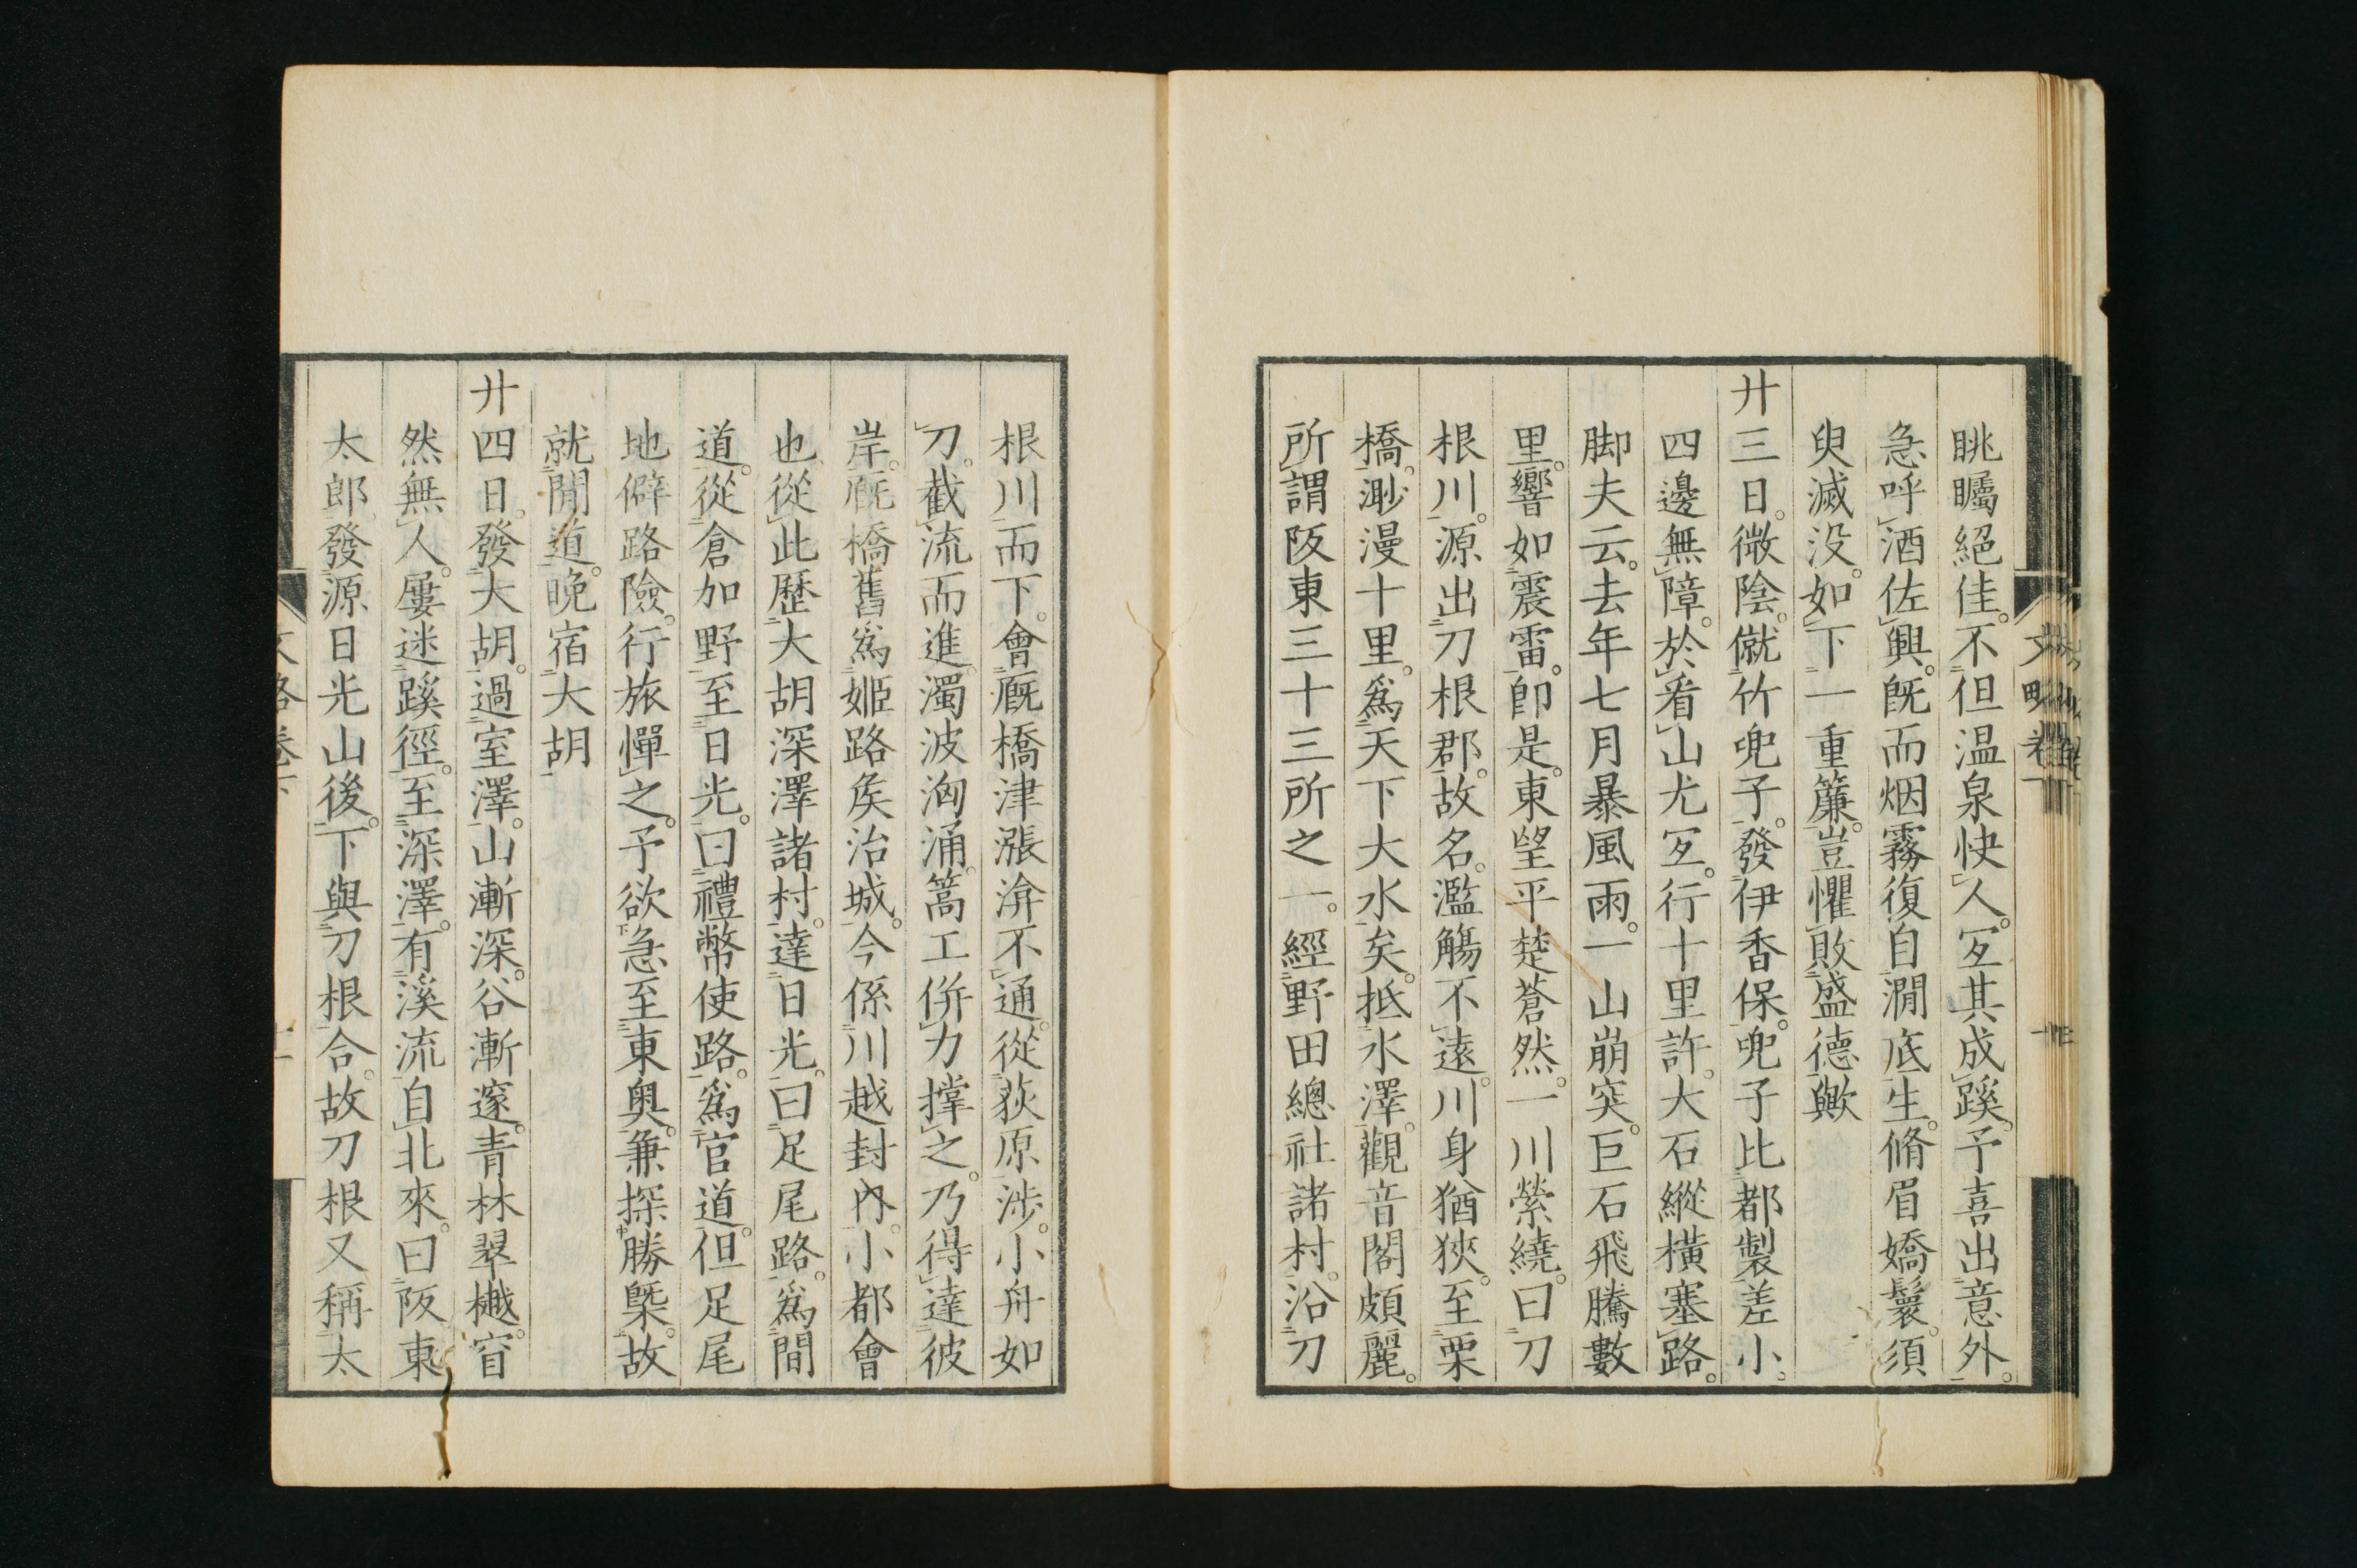 眺矚絕佳。不但温泉快人。宐其成蹊。予喜出意外。
急呼酒佐興。旣而烟霧復自澗底生。脩眉嬌鬟。須
臾滅没。如下一重簾。豈懼敗盛德歟
廾三日。微陰。僦竹兜子。發伊香保。兜子比都製差小。
四邊無障。於看山尤宐。行十里許。大石縱橫塞路。
脚夫云。去年七月暴風雨。一山崩突。巨石飛騰數
里。響如震雷。卽是。東望平楚蒼然。一川縈繞。曰刀
根川。源出刀根郡。故名。濫觴不遠。川身猶狹。至栗
橋。渺漫十里。爲天下大水矣。抵水澤。觀音閣頗麗。
所謂阪東三十三所之一。經野田總社諸村。沿刀
根川而下。會廐橋津漲洊不通。從荻原涉。小舟如
刀。截流而進。濁波洶涌。篙工併力撑之。乃得達彼
岸。廐橋舊爲姬路矦治城。今係川越封內。小都會
也。從此歷大胡深澤諸村。達日光。曰足尾路。爲間
道。從倉加野至日光。曰禮幣使路。爲官道。但足尾
地僻路險。行旅憚之。予欲急至東奧。兼探勝槩。故
就閒道。晚宿大胡
廾四日。發大胡。過室澤。山漸深。谷漸邃。青林翠樾。窅
然無人。屢迷蹊徑。至深澤。有溪流自北來。曰阪東
太郎。發源日光山後。下與刀根合。故刀根又稱太
文略卷下